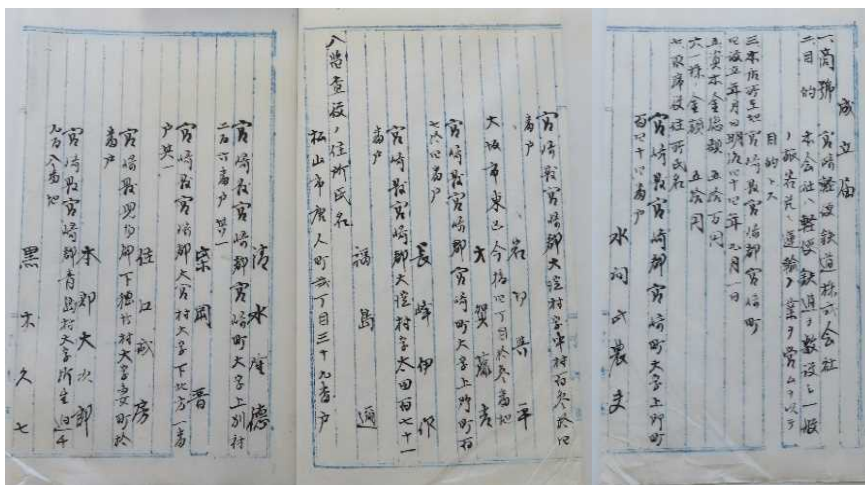 成立届
一、商號 宮崎軽便鉄道株式会社
二、目的 本会社ハ軽便鉄道ヲ敷設シ一般
ノ旅客荷物運輸ノ業ヲ営ムヲ以テ
目的トス
三、本店所在地 宮崎縣宮崎郡宮崎町
四、設立年月日 明治四十四年 月一日
五、資本金總額 五拾万円
六、一株ノ金額 五拾円
七、取締役住所氏名
宮崎縣宮崎郡宮崎町大字上野町
百四十四番戸
水間 農夫
宮崎縣宮崎郡大淀村字中村百参拾四
番戸
平
大阪市東区今橋四丁目拾参番地
大賀 吉
宮崎縣宮崎郡宮崎町大字上野町百
七拾四番戸
長峰伊作
宮崎縣宮崎郡大淀村字太田百七十一
番戸
福島邇
八、監査役ノ住所氏名
松山市唐人町弐丁目三十九番戸
清水隆徳
宮崎縣宮崎郡宮崎町大字上別府
二百六番戸其一
柴岡晋
宮崎縣宮崎郡大宮村大字下北方一番
戸其一
江成房
宮崎縣児湯郡下穂北村大字妻町拾
番戸
本部大次郎
宮崎縣宮崎郡青島村大字折生迫千
九百八番地
黒木久七